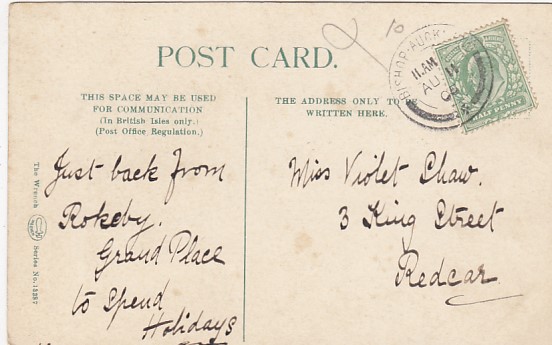 10
POST CARD.
BISHOP-AUCK
11.AM
AU 11
HALF PENNY
THIS SPACE MAY BE USED
FOR COMMUNICATION
(In British Isles only.)
(Post Office Regulation.)
THE ADDRESS ONLY TO
WRITTEN HERE.
The Wrench
Series No. 15287
Just back from
Rokeby.
Grand Place
to spend
Holidays
Miss Violet Shaw.
3 King Street
Redcar